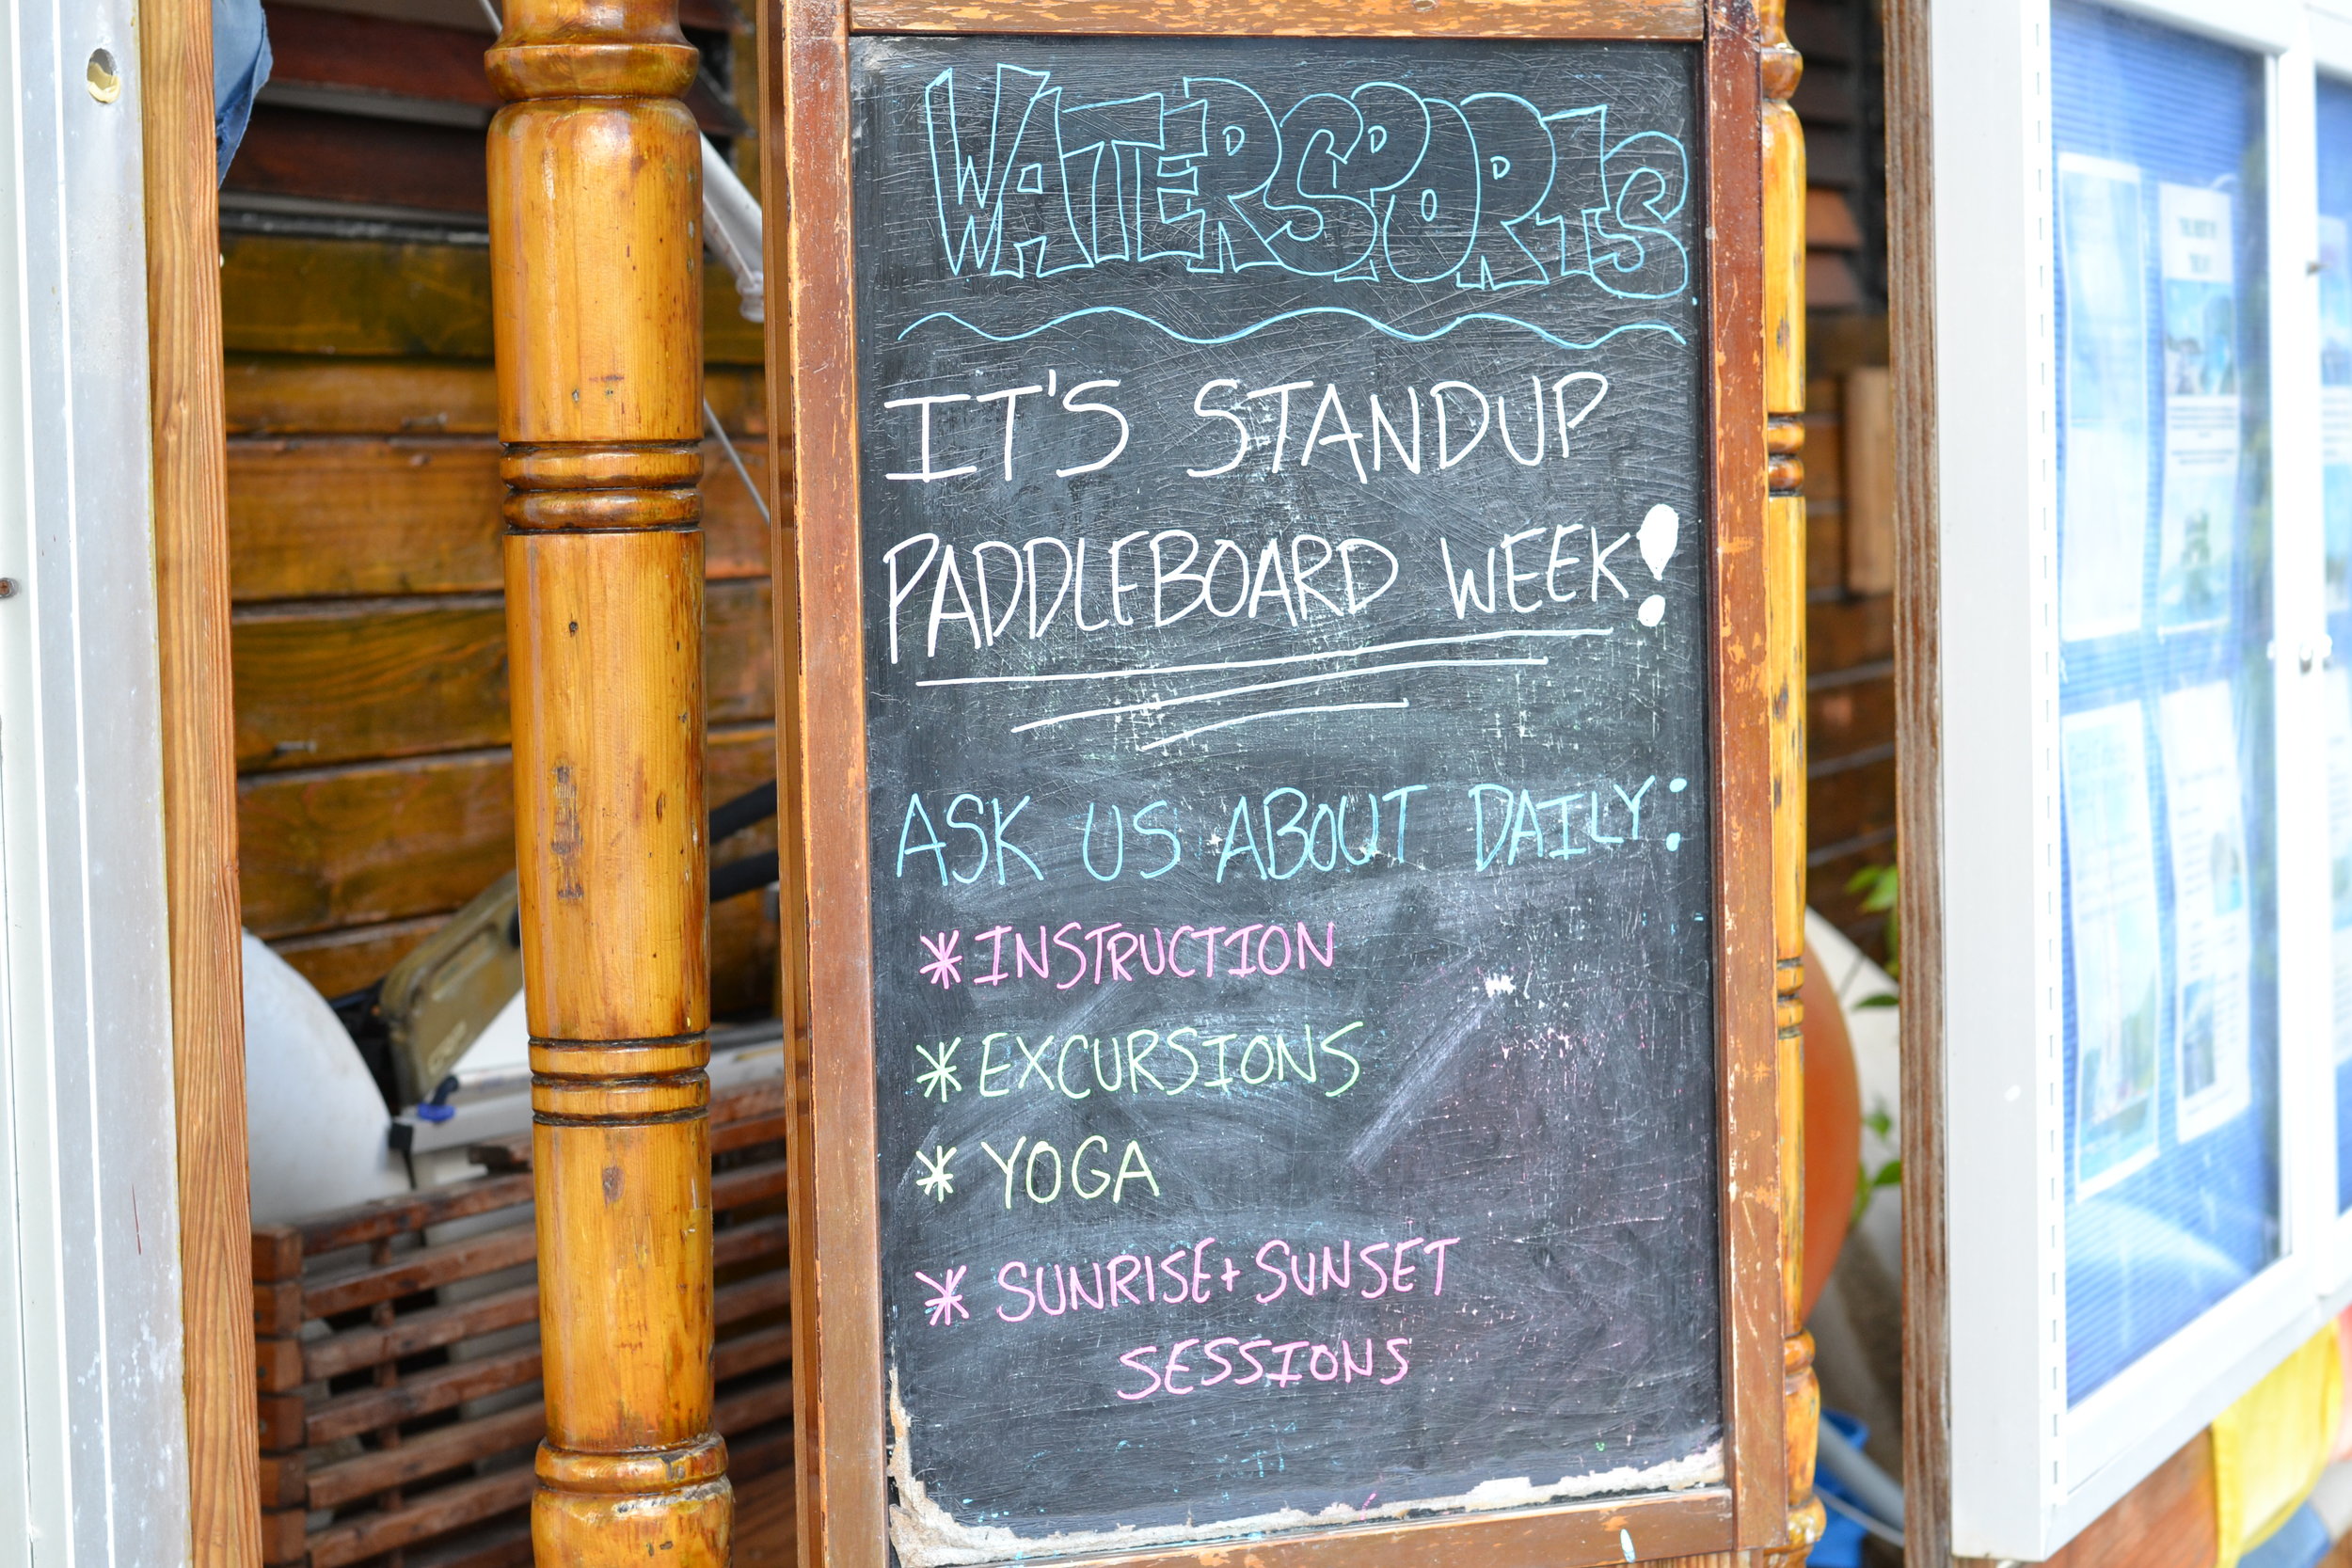 WATERSPORTS
IT'S STANDUP
PADDLEBOARD WEEK!
ASK US ABOUT DAILY:
* INSTRUCTION
* EXCURSIONS
* YOGA
* SUNRISE + SUNSET
SESSIONS